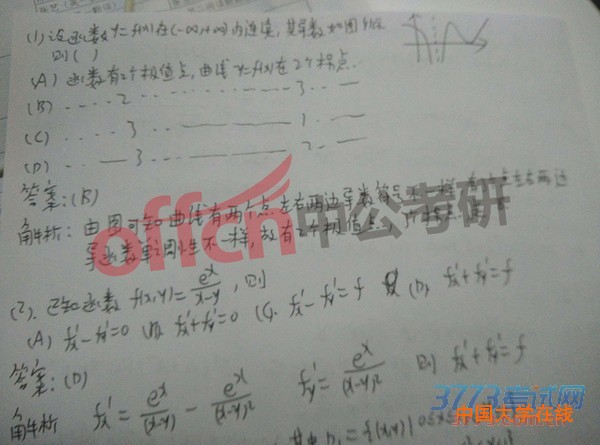 (1) 设函数 y=f(x) 在 (-∞,+∞) 内连续, 其导数如图所示
则( )
(A) 函数有2个极值点, 曲线 y=f(x) 有2个拐点.
(B) ‥‥ 2 ‥‥ 3 ‥
(C) ‥‥ 3 ‥‥ 1 ‥
(D) ‥‥ 3 ‥‥ 2 ‥
答案:(B)
解析: 由图可知曲线有两个点左右两边导数符号不一样, 有 左右两边
导函数单调性不一样, 故有2个极值点,
(2). 已知函数 f(x,y)= e^x/(x-y), 则
(A) fx'-fy'=0 (B) fx'+fy'=0 (C) fx'-fy'=f (D) fx'+fy'=f
答案:(D)
解析 fx' = e^x/(x-y) - e^x/(x-y)² fy' = e^x/(x-y)² 则 fx'+fy'=f
offcn 中公考研
3773考试网
中国大学在线